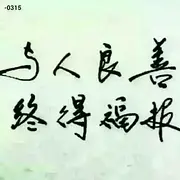 -0315
与人良善
终得福报